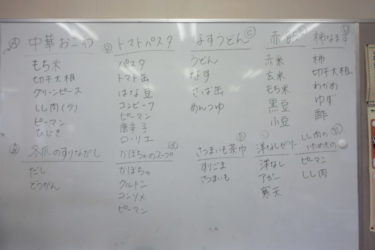 中華おこわ
もち米
切干大根
グリーンピース
しし肉(ウ)
ピーマン
ひじき
トマトパスタ
パスタ
トマト缶
はな豆
コンビーフ
ピーマン
唐辛子
ローリエ
なすうどん
うどん
なす
さば缶
めんつゆ
赤米
玄米
もち米
黒豆
小豆
柿なます
柿
切干大根
わかめ
ゆず
酢
冬瓜のすりながし
だし
とうがん
かぼちゃのスープ
かぼちゃ
クルトン
コンソメ
ピーマン
さつまいも茶巾
すりごま
さつまいも
洋なしゼリー
洋なし
アガー
寒天
しし肉の
いためもの
ピーマン
しし肉